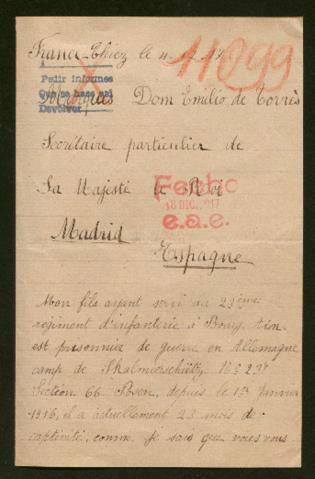 France-Thiez le 4-12-17
11099
Pedir informes
Que se hace así
Devolver
Marquès Dom Emilio de Torrès
Secrétaire particulier de
Sa Majesté le Roi
Fecho
18 DIC. 1917
e.a.e.
Madrid
Espagne
Mon fils ayant servi au 23ème
régiment d'infanterie à Bourg, Ain
est prisonnier de guerre en Allemagne
camp de Skalmierschütz, N: 237
Section 66 Posen, depuis le 1er Janvier
1916, il a actuellement 23 mois de
captivité, comme je sais que vous vous